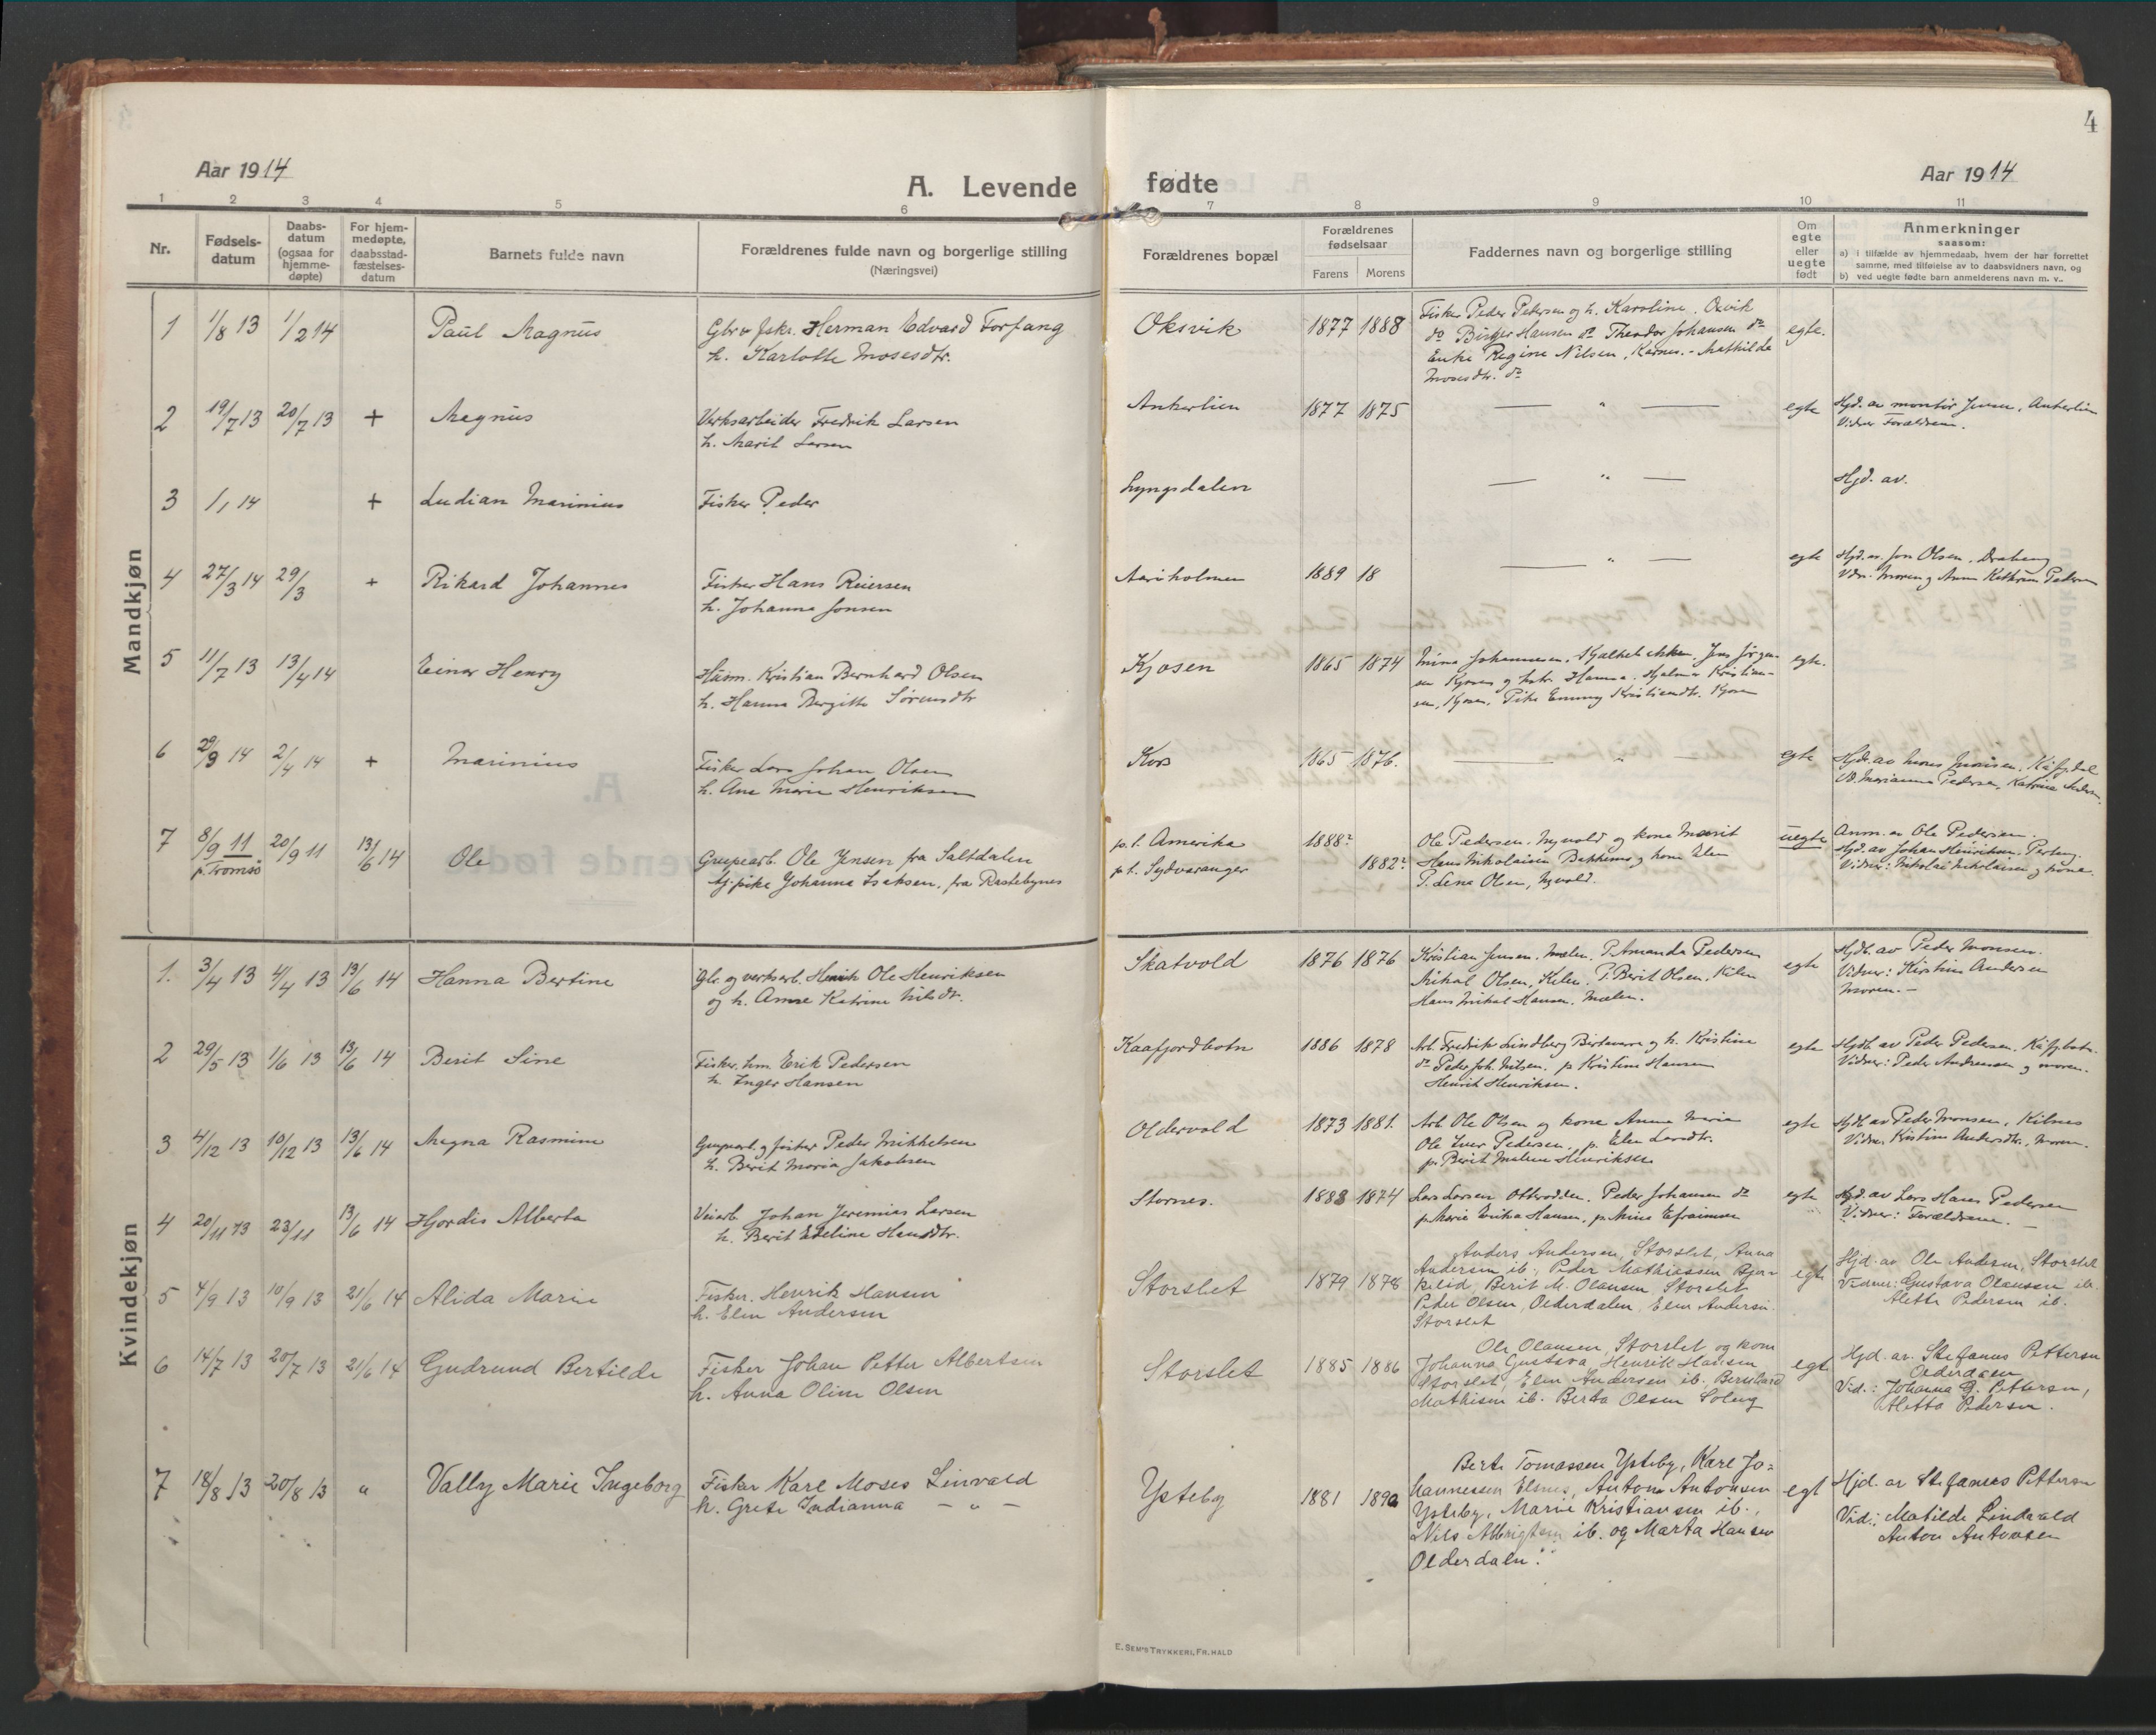 4
Aar 1914
A. Levende fødte
Aar 1914
1 2 3 4 5 6 7 8 9 10 11
Nr.
Fødsels-
datum
Daabs-
datum
(ogsaa for
hjemme-
døpte)
For hjem-
medøpte,
daabsstad-
fæstelses-
datum
Barnets fulde navn
Forældrenes fulde navn og borgerlige stilling
(Næringsvei)
Forældrenes bopæl
Forældrenes
fødselsaar
Farens Morens
Faddernes navn og borgerlige stilling
Om
egte
eller
uegte
født
Anmerkninger
saasom:
a) i tilfælde av hjemmedaab, hvem der har forrettet
samme, med tilføielse av to daabsvidners navn, og
b) ved uegte fødte barn anmelderens navn m. v..
Mandkjøn
1 1/8 13 1/2 14 Paul Magnus
Gbr. fskr. Herman Edvard Forfang
h. Karlotte Mosesdtr.
Oksvik 1877 1888
Fisker Peder Petersen og h. Karoline. Oxvik
do Birger Hansen do Theodor Johansen do
Enke Regine Nilsen, Karnes. - Mathilde
Mosesdtr. do
egte.
2 19/7 13 20/7 13 + Magnus
Verksarbeider Fredrik Larsen
h. Marit Larsen
Ankerlien 1877 1875 — " — egte
Hjd. av montør Jensen, Ankerlien
Vidner Forældrene.
3 1/1 14 + Ludian Marinius
Fisker Peder
Lyngsdalen — " —
Hjd. av.
4 27/3 14 29/3 + Rikard Johannes
Fisker Hans Reiersen
h. Johanna Jonsen
1889 18 — " — egte
Hjd. av Jon Olsen,
Vidn. Moren og Anna Kathrine Pedersen
5 11/7 13 13/4 14 Einar Henry
Husm. Kristian Bernhard Olsen
h. Hanna Bergitte Sørensdtr
Kjosen 1865 1874
Johannesen, Jens Jørgen-
sen Kjosen og hstr. Hanna. Hjalmar Kristian-
sen, Kjosen. Pike Emmy Kristiansdtr. Kjosen
egte.
6 29/3 14 2/4 14 + Marinius
Fisker Lars Johan Olsen
h. Ane Marie Henriksen
Kors 1865 1876. — " — egte
Hjd. av Mons Monsen, Kåfjdal
Vd. Marianna Pedersen, Katrine
7 8/9 11 20/9 11 13/6 14 Ole
p. Tromsø
Grupearb. Ole Jensen fra Saltdalen
tj. pike Johanna Isaksen, fra Rastebynes
p. t. Amerika 1888?
p t. Sydvaranger 1882?
Ole Pedersen. Nyvold og kone Marit
Hans Nikolaisen Bakkemo og kone Elen
P. Lena Olsen, Nyvold.
uegte
Anm. av Ole Pedersen.
Hjd. av Johan Henriksen.
Vidner: Nikolai Nikolaisen og kone.
Kvindekjøn
1. 3/4 13 4/4 13 13/6 14 Hanna Bertine
Gbr. og verksarb. Henrik Ole Henriksen
og h. Anne Katrine Nilsdtr.
Skatvold 1876 1876
Kristian Jensen. Mælen. P. Amanda Pedersen
Mikal Olsen, Kilen. P. Berit Olsen, Kilen
Hans Mikal Hansen. Mælen.
egte
Hjdb. av Peder Monsen.
Vidner: Kirstine Andersen
Moren. —
2 29/5 13 1/6 13 13/6 14 Berit Sine
Fisker, hm. Erik Pedersen
h. Inger Hansen
Kaafjordbotn 1886 1878
Arb. Fredrik Lindberg og h. Kristine
do Peder Joh. Nilsen. p Kristine Hansen
Henrik Henriksen.
egte
Hjdb. av Peder Pedersen, Kåfjbotn.
Vidner: Peder Andreassen og moren.
3 4/12 13 10/12 13 13/6 14 Magna Rasmine
Grupearb. og fisker Peder Mikkelsen
h. Berit Maria Jakobsen
Oldervold 1873 1881.
Arb. Ole Olsen og kone Anne Marie
Ole Iver Pedersen, p. Elen Larsdtr.
p. Berit Malene Henriksen
egte
Hjdb. av Peder Monsen, Kilnes
Vidner. Kristine Andersdtr., Moren.
4 20/11 13 23/11 13/6 14 Hjordis Alberta
Veiarb. Johan Jeremias Larsen
h. Berit Edeline Hansdtr.
Stornes. 1883 1874
Lars Larsen. Peder Johansen do
p. Marie Erika Hansen, p. Nina Efraimsen
egte
Hjd. av Lars Hans Pedersen
Vidner: Forældrene. —
5 4/9 13 10/9 13 21/6 14 Alida Marie
Fisker. Henrik Hansen
h. Elen Andersen
Storslet 1879 1878
Anders Andersen, Storslet, Anna
Andersen ib., Peder Mathiassen Bjer-
kelid, Berit M. Olausen, Storslet
Peder Olsen, Olderdalen, Elen Andersen
Storslet
egte
Hjd. av Ole Andersen, Storslet
Vidner: Gustava Olaussen ib.
Aletta Pedersen ib.
6 14/7 13 20/7 13 21/6 14 Gudrund Bertilde
Fisker Johan Petter Albertsen
h. Anna Oline Olsen
Storslet 1885 1886
Ole Olausen, Storslet og kone
Johanna Gustava, Henrik Hansen
Storslet, Elen Andersen ib. Bernhard
Mathisen ib. Berta Olsen Soleng
egte
Hjd. av. Stefanus Pettersen
Olderdalen
Vid.: Johanna G. Pettersen,
Aletta Pedersen.
7 18/8 13 20/8 13 " Vally Marie Ingeborg
Fisker Karl Moses Linvald
h. Grete Indianna — " —
Ysteby 1881 1890
Berte Tomassen Ysteby, Karl Jo=
hannessen Elsnes, Anton Antonsen
Ysteby, Marie Kristiansen ib.,
Nils Albrigtsen ib. og Marta Hansen
Olderdalen.
egt
Hjd. av Stefanus Pettersen
Vid.: Matilde Lindvald
Anton Antonsen
E. SEM'S TRYKKERI, FR. HALD